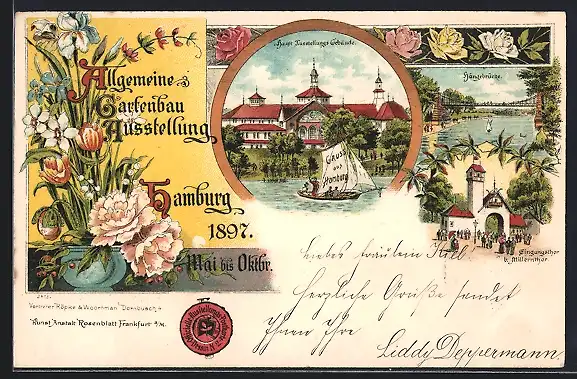 Allgemeine
Gartenbau
Ausstellung
Hamburg
1897.
Mai bis Oktbr.
Haupt Ausstellungs Gebäude.
Gruss
aus
Hamburg
Hängebrücke.
Eingangsthor
b. Millernthor.
Vertreter Röpke & Woortman Dornbusch 4
Kunst Anstalt Rosenblatt Frankfurt a/M.
Liebes Fräulein Kiel.
Herzliche Grüße sendet
Ihnen Ihre
Liddy Deppermann